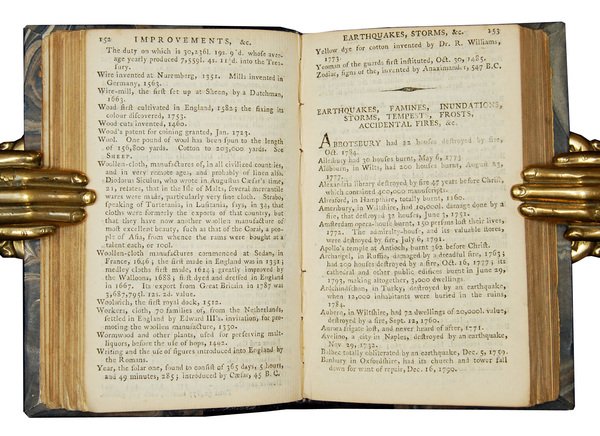 152 IMPROVEMENTS, &c.
The duty on which is 30,236l. 19s. 9d. whose aver-
age yearly produced 7,559l. 4s. 11¼d. into the Trea-
sury.
Wire invented at Nuremberg, 1351. Mills invented in
Germany, 1563.
Wire-mill, the first set up at Sheen, by a Dutchman,
1663.
Woad first cultivated in England, 1582; the fixing its
colour discovered, 1753.
Wood-cuts invented, 1460.
Wood's patent for coining granted, Jan. 1723.
Wool. One pound of wool has been spun to the length
of 156,800 yards. Cotton to 203,000 yards. See
SHEEP.
Woollen-cloth, manufactures of, in all civilized countries,
and in very remote ages, and probably of linen also.
Diodorus Siculus, who wrote in Augustus Cæsar's time,
21, relates, that in the Isle of Malta, several mercantile
wares were made, particularly very fine cloth. Strabo,
speaking of Turtetania, in Lusitania, says, in 34, that
cloth were formerly the exports of that country, but
that they have now another woollen manufacture of
most excellent beauty, such as that of the Corai, a peo-
ple of Asia, from whence the rams were bought at a
talent each, or 100l.
Woollen-cloth manufactures commenced at Sedan, in
France, 1646; the first made in England was in 1331;
medley cloths first made, 1614; greatly improved by
the Walloons, 1688; first dyed and dressed in England
in 1667. Its export from Great Britain in 1787 was
3,687,795l. 12s. 2d. value.
Woolwich, the first royal dock, 1512.
Workers, cloth, 70 families of, from the Netherlands,
settled in England by Edward III's invitation, for pro-
moting the woollen manufacture, 1330.
Wormwood and other plants, used for preserving malt-
liquors, before the use of hops, 1492.
Writing and the use of figures introduced into England by
the Romans.
Year, the solar one, found to consist of 365 days, 5 hours,
and 49 minutes, 285; introduced by Cæsar, 45 B.C.
EARTHQUAKES, STORMS, &c. 153
Yellow dye for cotton invented by Dr. R. Williams,
1773.
Yeoman of the guards first instituted, Oct. 30, 1485.
Zodiac, signs of the, invented by Anaximander, 547 B.C.
EARTHQUAKES, FAMINES, INUNDATIONS,
STORMS, TEMPEST, FROSTS,
ACCIDENTAL FIRES, &c.
ABBOTSBURY had 22 houses destroyed by fire,
Oct. 1784.
Ailesbury had 30 houses burnt, May 6, 1773
Allbourn, in Wilts, had 200 houses burnt, August 23,
1777.
Alexandria library destroyed by fire 47 years before Christ,
which contained 400,000 manuscripts.
Alresford, in Hampshire, totally burnt, 1160.
Amersbury, in Wiltshire, had 10,000l. damage done by a
fire, that destroyed 32 houses, June 3, 1751.
Amsterdam opera-house burnt, 150 persons lost their lives,
1772. The admiralty-house, and its valuable stores,
were destroyed by fire, July 6, 1791.
Apollo's temple at Antioch, burnt 362 before Christ.
Archangel, in Russia, damaged by a dreadful fire, 1763;
had 200 houses destroyed by a fire, Oct. 26, 1777; its
cathedral and other public edifices burnt in June 29,
1793, making altogether, 3,000 dwellings.
Ardchindschian, in Turky, destroyed by an earthquake,
when 12,000 inhabitants were buried in the ruins,
1784.
Auborn, in Wiltshire, had 72 dwellings of 20,000l. value,
destroyed by a fire, Sept. 12, 1760.
Aurora frigate lost, and never heard of after, 1771.
Avelino, a city in Naples, destroyed by an earthquake,
Nov. 29, 1732.
Balbec totally obliterated by an earthquake, Dec. 5, 1759.
Banbury in Oxfordshire, had its church and tower fall
down for want of repair, Dec. 16, 1790.